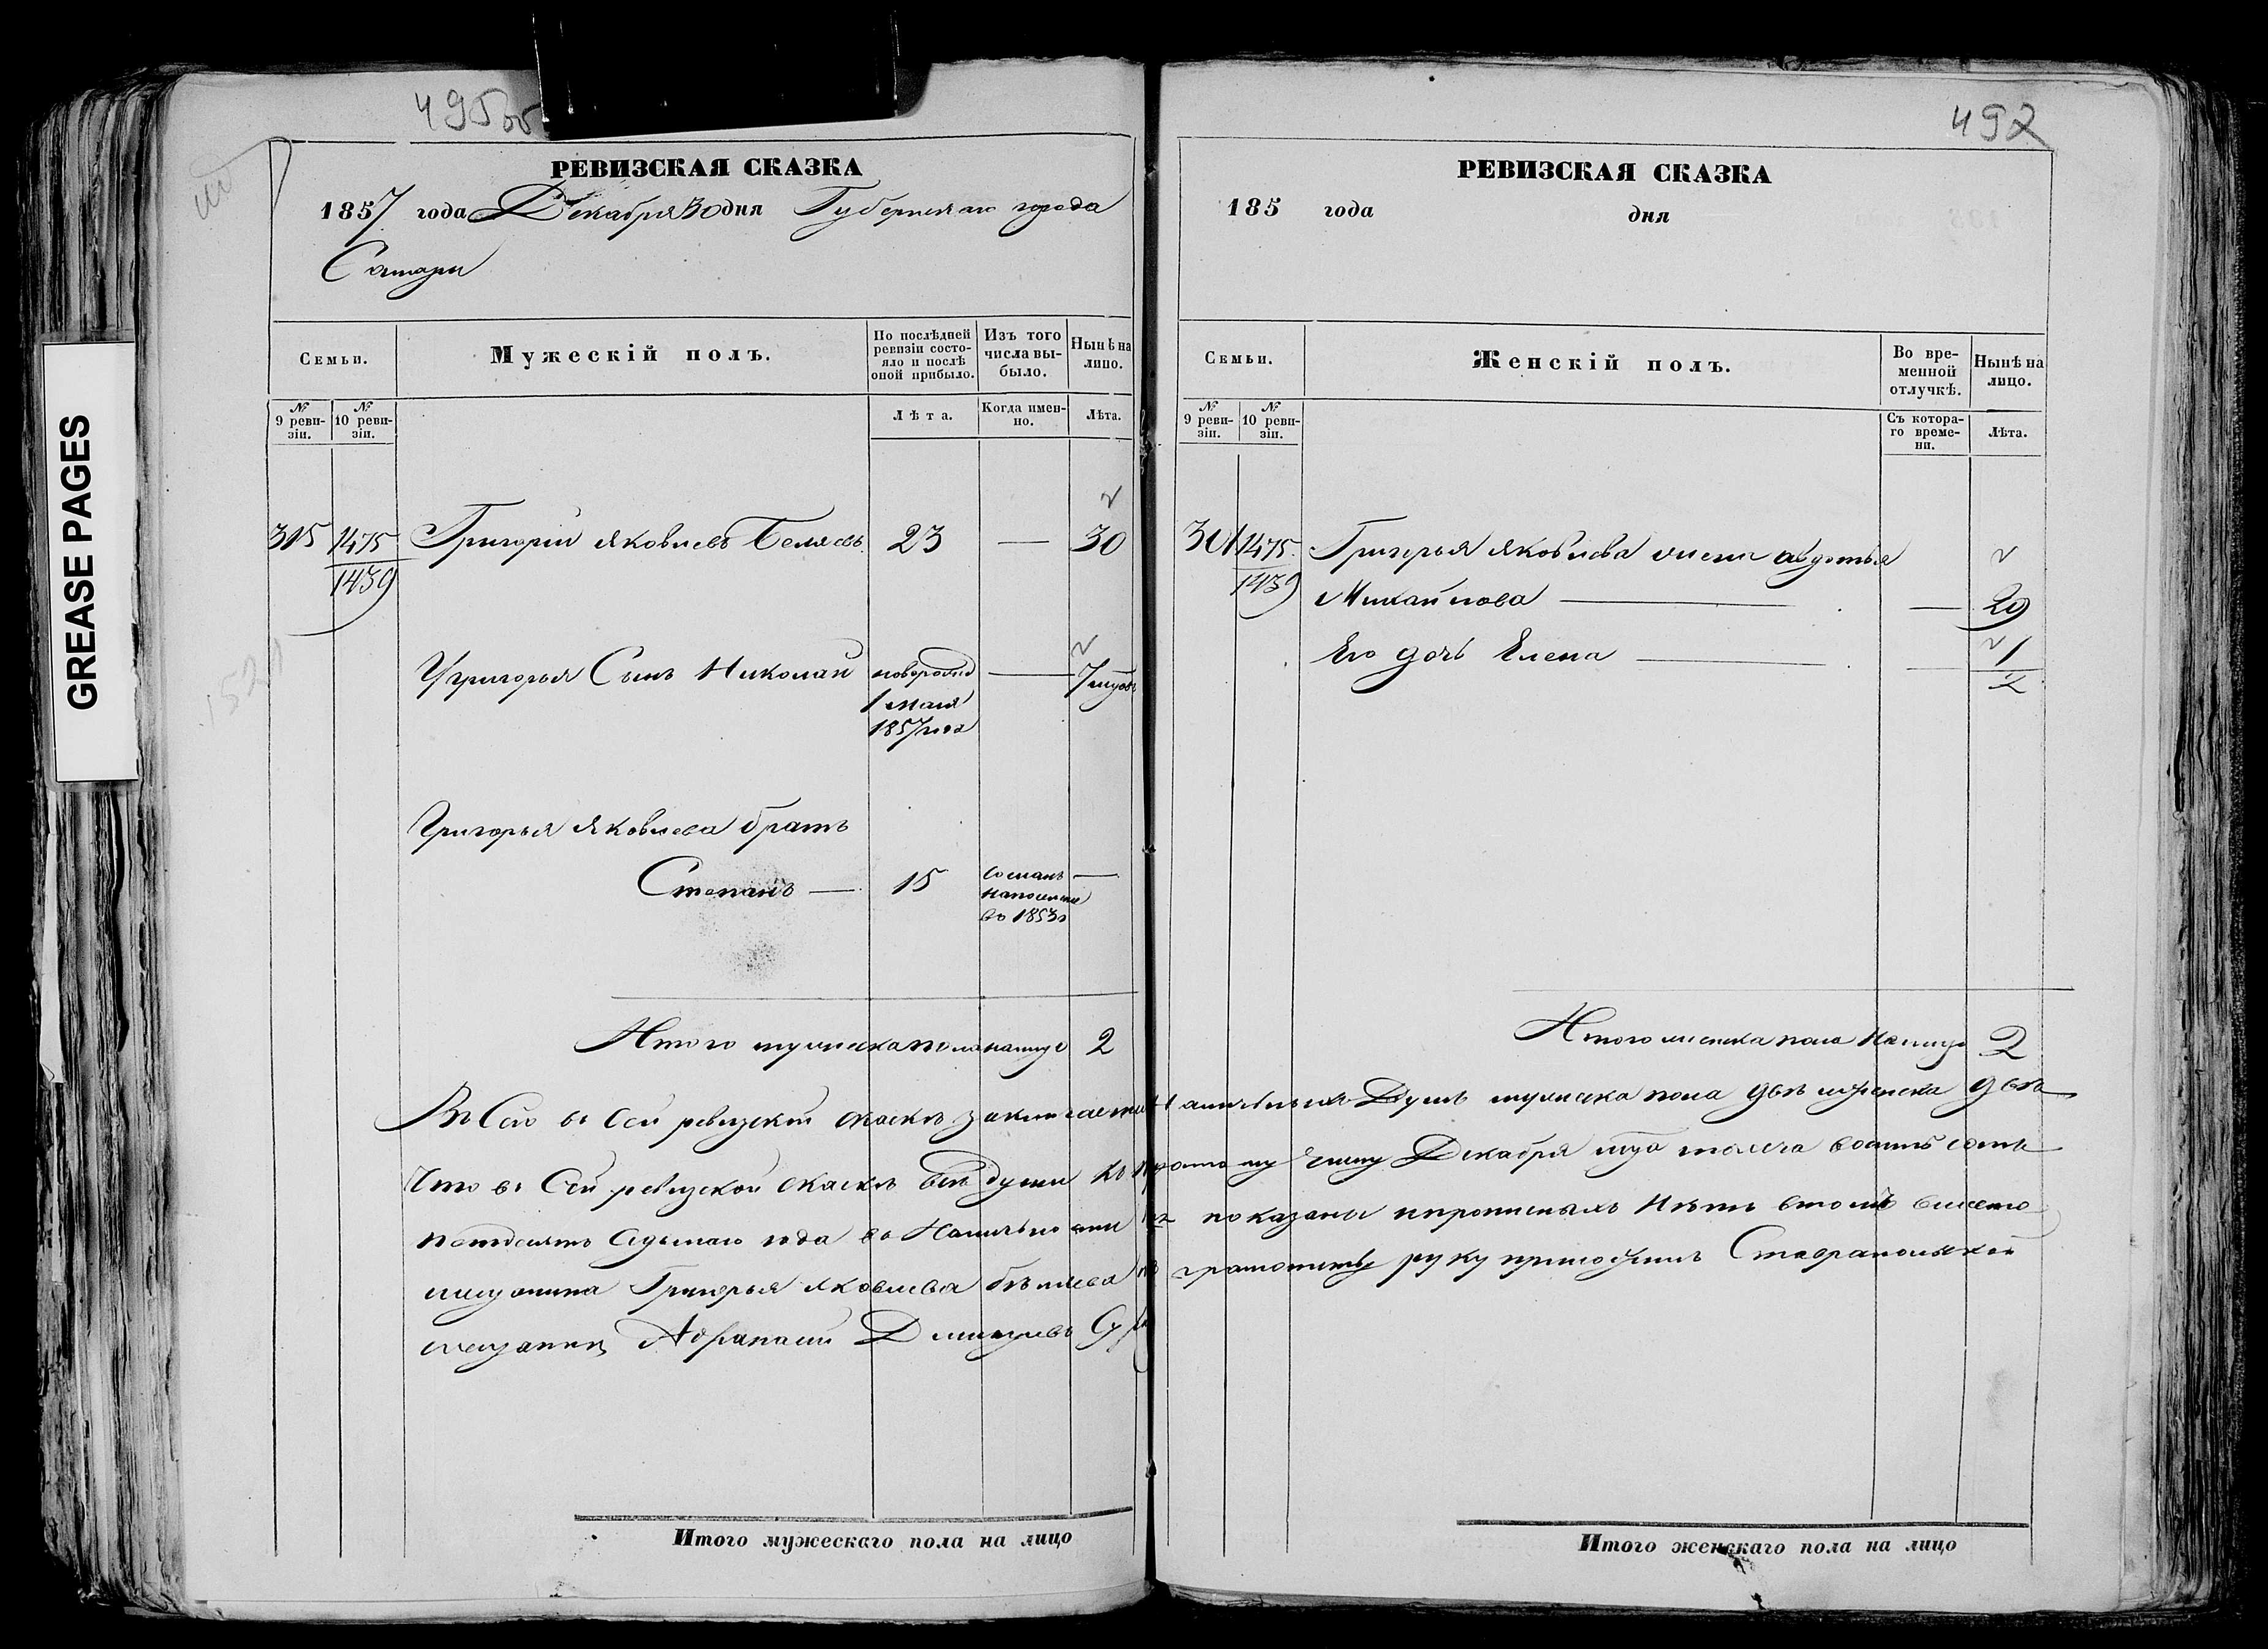 495 об
РЕВИЗСКАЯ СКАЗКА
1857 года Декабря 30 дня Губернскаго города
Самары
Семьи.
Мужескій полъ.
По послѣдней ревизіи состояло и послѣ оной прибыло.
Изъ того числа выбыло.
Нынѣ на лицо.
№ 9 ревизіи.
№ 10 ревизіи.
Лѣта.
Когда именно.
Лѣта.
315 1475 Григорій Яковлевъ Беляевъ 23 — 30
1439
У Григорья Сынъ Николай новорожд — 7 мцовъ
1 мая
1857 года
Григорья Яковлева братъ
Степанъ — 15 сосланъ —
на поселение
въ 1853 г
Итого мужеска пола на лицо 2
GREASE PAGES
Итого мужескаго пола на лицо
492
РЕВИЗСКАЯ СКАЗКА
185 года дня
Семьи.
Женскій полъ.
Во временной отлучкѣ.
Нынѣ на лицо.
№ 9 ревизіи.
№ 10 ревизіи.
Съ котораго времени.
Лѣта.
301 1475 Григорья Яковлева жена Авдотья
1439 Михайлова — — 29
Его дочь Елена — — 1
2
Итого женска пола на лицо 2
Всего въ сей ревизской сказкѣ заключается наличныхъ душъ мужска пола двѣ женска двѣ
Что въ сей ревизской сказкѣ всѣ души по Декабря тысяча восемь сотъ
пятдесятъ седьмаго года въ наличности показаны и прописныхъ нѣтъ въ томъ вместо
мещанина Григорья Яковлева Бѣляева руку приложилъ Ставропольской
мещанинъ Афанасий
Итого женскаго пола на лицо